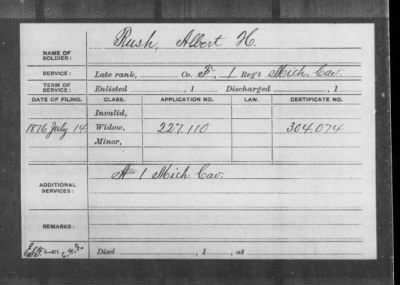 NAME OF SOLDIER: Rush, Albert H.
SERVICE: Late rank, Co. F, 1 Reg't Mich. Cav.
TERM OF SERVICE: Enlisted , 1 Discharged , 1
DATE OF FILING. CLASS. APPLICATION NO. LAW. CERTIFICATE NO.
Invalid,
1876 July 14 Widow, 227.110 304.074
Minor,
ADDITIONAL SERVICES: A 1 Mich. Cav.
REMARKS:
Died , 1 , at